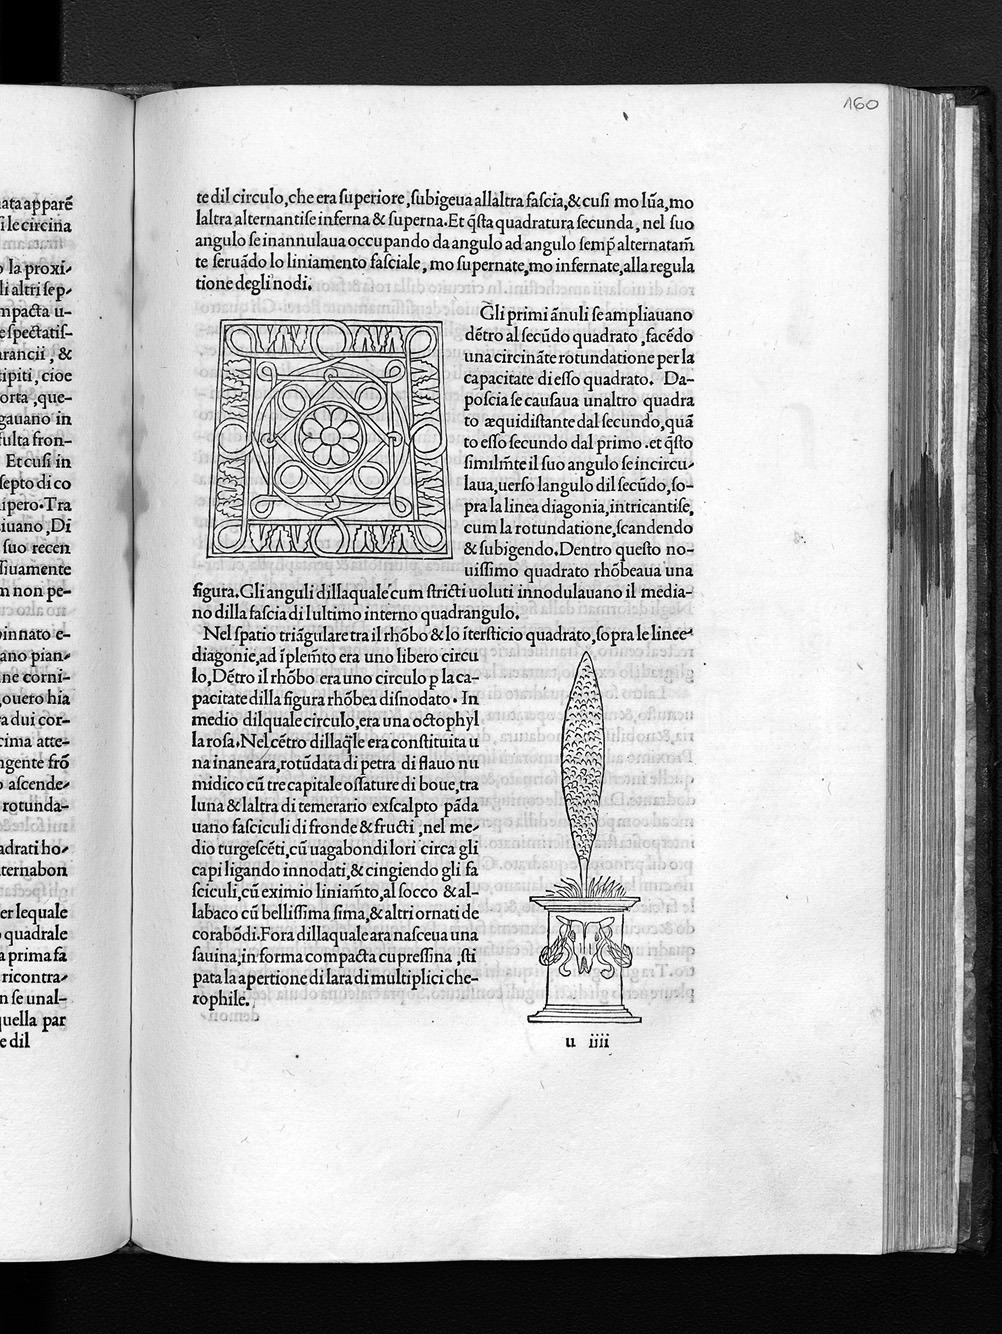 160
ata apparē
le circina
o la proxi-
li altri sep-
mpacta u-
e spectatis-
arancii, &
tipiti, cioe
orta, que-
gauano in
fulta fron-
Et cusi in
septo di co
ipero. Tra
iuano, Di
suo recen
siuamente
m non pe-
innato e-
ano pian-
ne corni-
,ouero hia
a dui cor-
cima atte-
ngente frō
o ascende-
rotunda-
adrati ho-
ternabon
er lequale
quadrale
a prima fa
ricontra-
n se unal-
quella par
e dil
te dil circulo, che era superiore, subigeua allaltra fascia, & cusi mo lūa, mo
laltra alternantise inferna & superna. Et q̄sta quadratura secunda, nel suo
angulo se inannulaua occupando da angulo ad angulo semp̄ alternatam̄
te seruādo lo liniamento fasciale, mo supernate, mo infernate, alla regula
tione degli nodi.
Gli primi ānuli se ampliauano
dētro al secūdo quadrato, facēdo
una circināte rotundatione per la
capacitate di esso quadrato. Da-
poscia se causaua unaltro quadra
to æquidistante dal secundo, quā
to esso secundo dal primo. et q̄sto
similm̄te il suo angulo se incircu-
laua, uerso langulo dil secūdo, so-
pra la linea diagonia, intricantise,
cum la rotundatione, scandendo
& subigendo. Dentro questo no-
uissimo quadrato rhōbeaua una
figura. Gli anguli dillaquale cum stricti uoluti innodulauano il media-
no dilla fascia di lultimo interno quadrangulo.
Nel spatio triāgulare tra il rhōbo & lo ītersticio quadrato, sopra le linee
diagonie, ad īplem̄to era uno libero circu
lo, Dētro il rhōbo era uno circulo p la ca-
pacitate dilla figura rhōbea disnodato. In
medio dilquale circulo, era una octophyl
la rosa. Nel cētro dillaq̄le era constituita u
na inane ara, rotūdata di petra di flauo nu
midico cū tre capitale ossature di boue, tra
luna & laltra di temerario exscalpto pāda
uano fasciculi di fronde & fructi, nel me-
dio turgescēti, cū uagabondi lori circa gli
capi ligando innodati, & cingiendo gli fa
sciculi, cū eximio liniam̄to, al socco & al-
labaco cū bellissima sima, & altri ornati de
corabōdi. Fora dillaquale ara nasceua una
sauina, in forma compacta cupressina, sti
pata la apertione di lara di multiplici che-
rophile.
u iiii